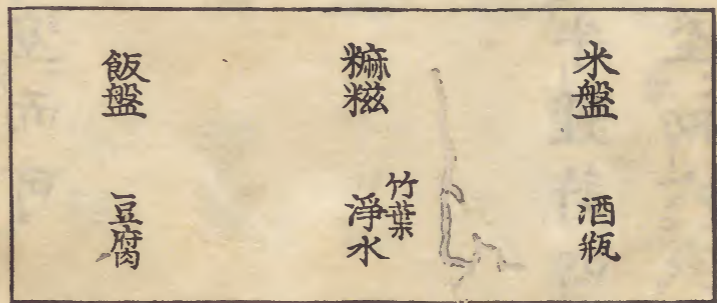 米盤
酒瓶
糍糍
竹葉
淨水
飯盤
豆腐